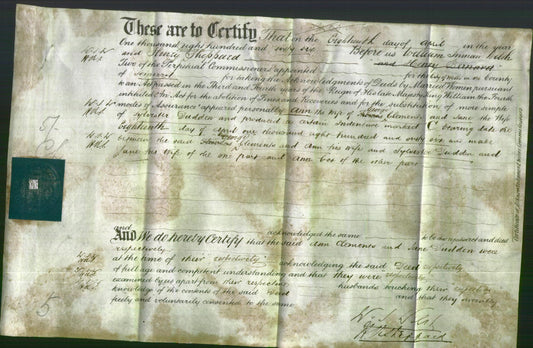 These are to Certify, That on the Eighteenth day of April in the year
One thousand eight hundred and sixty six Before us William Inman Welsh
and Henry Sheppard
Two of the Perpetual Commissioners appointed for the County
of Somerset for taking the Acknowledgments of Deeds by Married Women, pursuant
to an Act passed in the Third and Fourth years of the Reign of His late Majesty King William the Fourth
intituled An Act for the abolition of Fines and Recoveries and for the substitution of more simple
modes of Assurance appeared personally Ann the Wife of Clements and Jane the Wife
of Sylvester Dudden and produced a certain Indenture marked C bearing date the
Eighteenth day of April one thousand eight hundred and sixty six and made
between the said Clements and Ann his Wife and Sylvester Dudden and
Jane his Wife of the one part and Ann Cox of the other part
and acknowledged the same to be their respective act and deed
And We do hereby Certify that the said Ann Clements and Jane Dudden were
respectively
at the time of their respectively acknowledging the said Deed
of full age and competent understanding and that they were respectively
examined by us apart from their respective husbands touching their respective
knowledge of the contents of the said Deed and that they severally
freely and voluntarily consented to the same